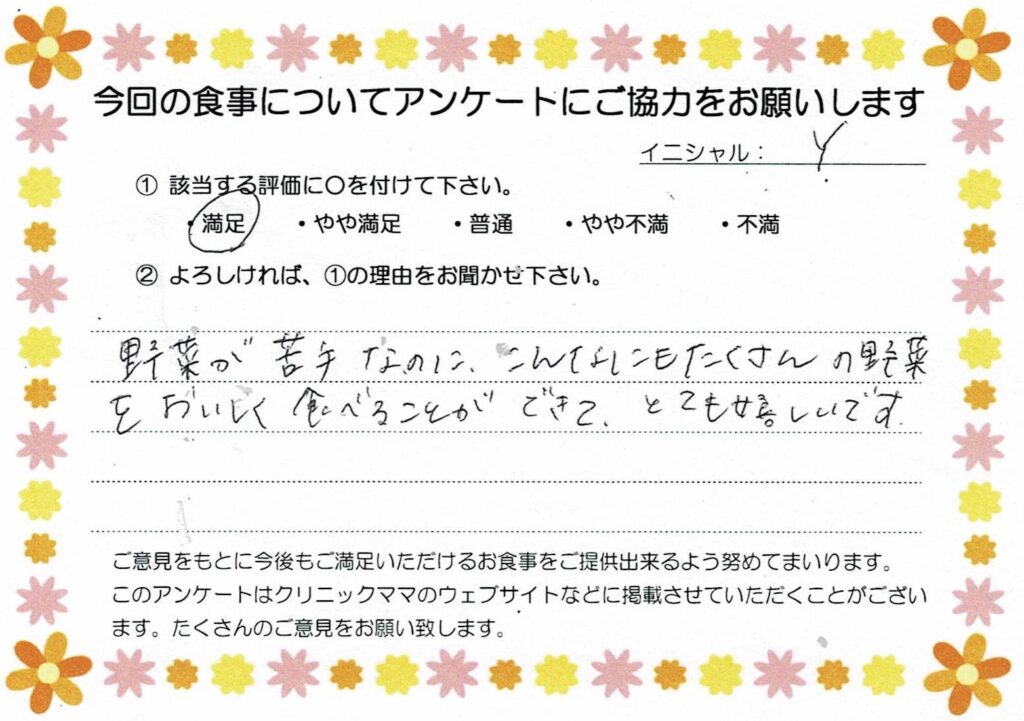 今回の食事についてアンケートにご協力をお願いします
イニシャル： Y
① 該当する評価に○を付けて下さい。
・満足 ・やや満足 ・普通 ・やや不満 ・不満
② よろしければ、①の理由をお聞かせ下さい。
野菜が苦手なのに、こんなにもたくさんの野菜
をおいしく食べることができて、とても嬉しいです。
ご意見をもとに今後もご満足いただけるお食事をご提供出来るよう努めてまいります。
このアンケートはクリニックママのウェブサイトなどに掲載させていただくことがござい
ます。たくさんのご意見をお願い致します。